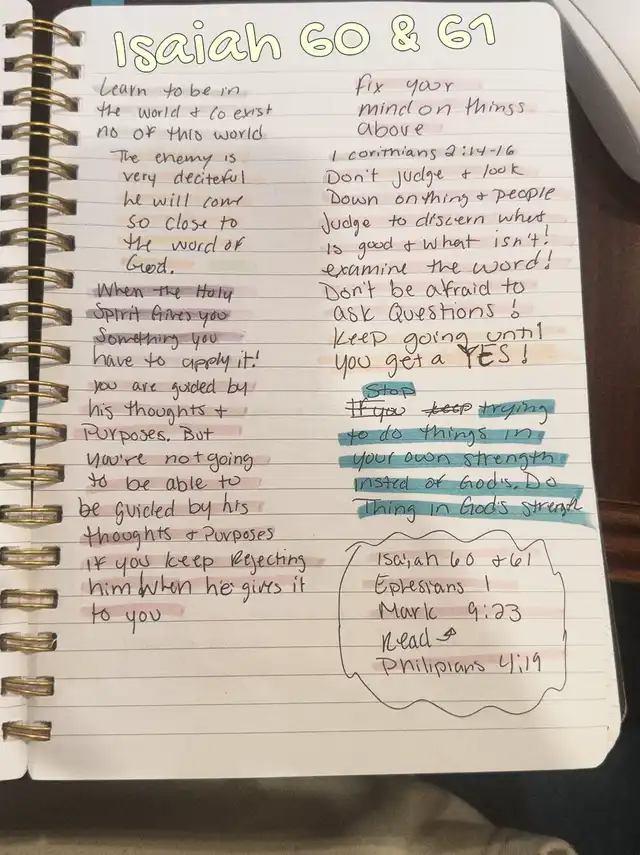 Isaiah 60 & 61
Learn to be in
the world & Co exist
no of this world
The enemy is
very deciteful
he will come
so close to
the word of
God.
When the Holy
Spirit Gives you
Something you
have to apply it!
you are guided by
his thoughts &
Purposes. But
you're not going
to be able to
be guided by his
thoughts & Purposes
if you keep Rejecting
him when he gives it
to you
fix your
mind on things
above
1 corinthians 2:14-16
Don't judge & look
Down on thing & people
Judge to discern what
is good & what isn't!
examine the word!
Don't be afraid to
ask Questions!
Keep going until
you get a YES!
Stop
If you keep trying
to do things in
your own strength
insted of God's. Do
Thing in God's strength
Isaiah 60 & 61
Ephesians 1
Mark 9:23
Read
Philipians 4:19